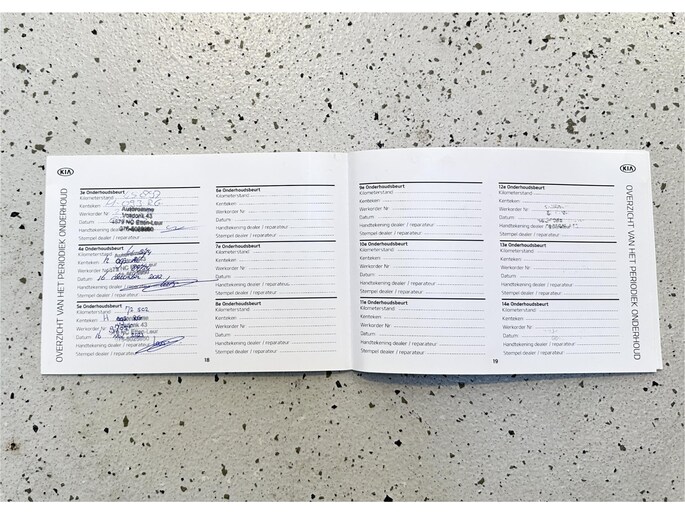 KIA
OVERZICHT VAN HET PERIODIEK ONDERHOUD
3e Onderhoudsbeurt
Kilometerstand
Kenteken
Werkorder Nr
Datum
Handtekening dealer
Stempel dealer / reparateur
4e Onderhoudsbeurt
Kilometerstand
Kenteken
Werkorder
Datum 16
Handtekening dealer /
Stempel dealer / reparateur
5e Onderhoudsbeurt
Kilometerstand
Kenteken H
Werkorder
Datum 16
Handtekening dealer / reparateur
Stempel dealer / reparateur
6e Onderhoudsbeurt
Kilometerstand
Kenteken
Werkorder Nr
Datum
Handtekening dealer / reparateur
Stempel dealer / reparateur
7e Onderhoudsbeurt
Kilometerstand
Kenteken
Werkorder Nr
Datum
Handtekening dealer / reparateur
Stempel dealer / reparateur
8e Onderhoudsbeurt
Kilometerstand
Kenteken
Werkorder Nr
Datum
Handtekening dealer / reparateur
Stempel dealer / reparateur
18
9e Onderhoudsbeurt
Kilometerstand
Kenteken
Werkorder Nr
Datum
Handtekening dealer / reparateur
Stempel dealer / reparateur
10e Onderhoudsbeurt
Kilometerstand
Kenteken
Werkorder Nr
Datum
Handtekening dealer / reparateur
Stempel dealer / reparateur
11e Onderhoudsbeurt
Kilometerstand
Kenteken
Werkorder Nr
Datum
Handtekening dealer / reparateur
Stempel dealer / reparateur
12e Onderhoudsbeurt
Kilometerstand
Kenteken
Werkorder Nr
Datum
Handtekening dealer /
Stempel dealer / reparateur
13e Onderhoudsbeurt
Kilometerstand
Kenteken
Werkorder Nr
Datum
Handtekening dealer / reparateur
Stempel dealer / reparateur
14e Onderhoudsbeurt
Kilometerstand
Kenteken
Werkorder Nr
Datum
Handtekening dealer / reparateur
Stempel dealer / reparateur
19
KIA
OVERZICHT VAN HET PERIODIEK ONDERHOUD